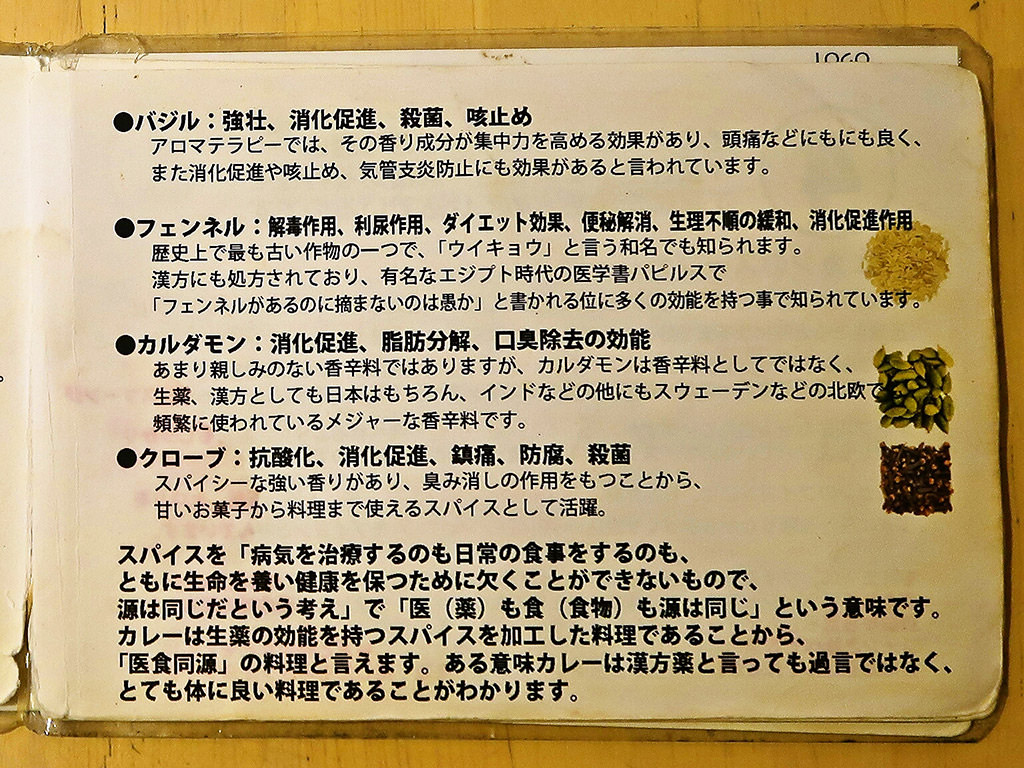 ●バジル：強壮、消化促進、殺菌、咳止め
アロマテラピーでは、その香り成分が集中力を高める効果があり、頭痛などにもにも良く、
また消化促進や咳止め、気管支炎防止にも効果があると言われています。
●フェンネル：解毒作用、利尿作用、ダイエット効果、便秘解消、生理不順の緩和、消化促進作用
歴史上で最も古い作物の一つで、「ウイキョウ」と言う和名でも知られます。
漢方にも処方されており、有名なエジプト時代の医学書パピルスで
「フェンネルがあるのに摘まないのは愚か」と書かれる位に多くの効能を持つ事で知られています。
●カルダモン：消化促進、脂肪分解、口臭除去の効能
あまり親しみのない香辛料ではありますが、カルダモンは香辛料としてではなく、
生薬、漢方としても日本はもちろん、インドなどの他にもスウェーデンなどの北欧で
頻繁に使われているメジャーな香辛料です。
●クローブ：抗酸化、消化促進、鎮痛、防腐、殺菌
スパイシーな強い香りがあり、臭み消しの作用をもつことから、
甘いお菓子から料理まで使えるスパイスとして活躍。
スパイスを「病気を治療するのも日常の食事をするのも、
ともに生命を養い健康を保つために欠くことができないもので、
源は同じだという考え」で「医（薬）も食（食物）も源は同じ」という意味です。
カレーは生薬の効能を持つスパイスを加工した料理であることから、
「医食同源」の料理と言えます。ある意味カレーは漢方薬と言っても過言ではなく、
とても体に良い料理であることがわかります。